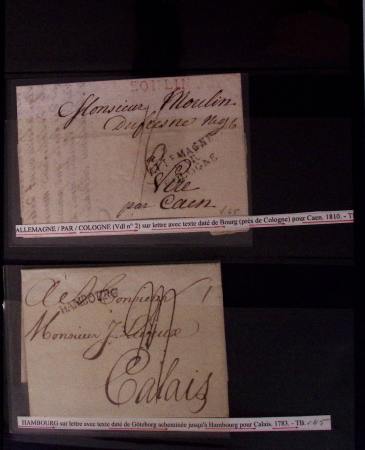 Monsieur Moulin
ALLEMAGNE
Vire
par Caen
ALLEMAGNE / PAR / COLOGNE (Vdl n° 2) sur lettre avec texte daté de Bourg (près de Cologne) pour Caen. 1810. - T
HAMBOURG
Monsieur J.
Calais
HAMBOURG sur lettre avec texte daté de Göteborg acheminée jusqu'à Hambourg pour Calais. 1783. - Tb